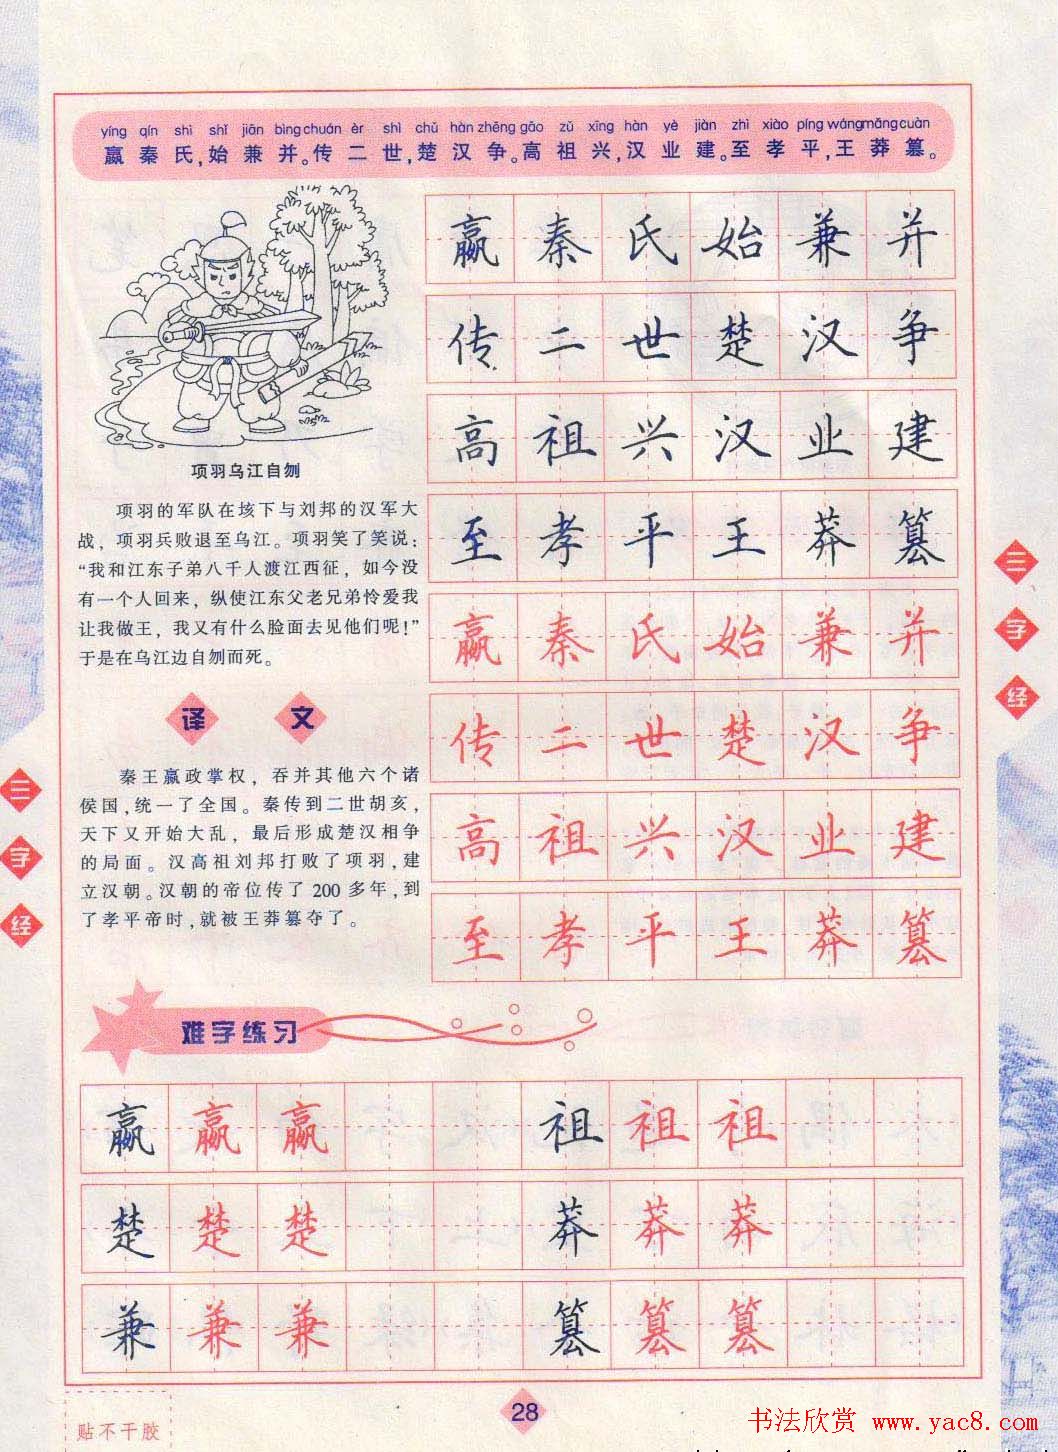 yíng qín shì shǐ jiān bìng chuán èr shì chǔ hàn zhēng gāo zǔ xīng hàn yè jiàn zhì xiào píng wáng mǎng cuàn
嬴秦氏,始兼并。传二世,楚汉争。高祖兴,汉业建。至孝平,王莽篡。
嬴秦氏始兼并
传二世楚汉争
高祖兴汉业建
至孝平王莽篡
嬴秦氏始兼并
传二世楚汉争
高祖兴汉业建
至孝平王莽篡
项羽乌江自刎
项羽的军队在垓下与刘邦的汉军大
战，项羽兵败退至乌江。项羽笑了笑说：
“我和江东子弟八千人渡江西征，如今没
有一个人回来，纵使江东父老兄弟怜爱我
让我做王，我又有什么脸面去见他们呢!”
于是在乌江边自刎而死。
译文
秦王嬴政掌权，吞并其他六个诸
侯国,统一了全国。秦传到二世胡亥,
天下又开始大乱，最后形成楚汉相争
的局面。汉高祖刘邦打败了项羽,建
立汉朝。汉朝的帝位传了200多年,到
了孝平帝时,就被王莽篡夺了。
三字经
三字经
难字练习
嬴嬴嬴 祖祖祖
楚楚楚 莽莽莽
兼兼兼 篡篡篡
贴不干胶
28
书法欣赏 www.yac8.com